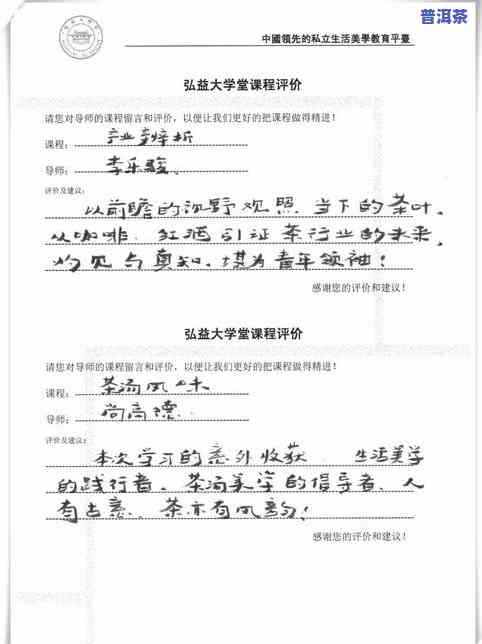 普洱茶
中國領先的私立生活美學教育平臺
弘益大学堂课程评价
请您对导师的课程留言和评价，以便让我们更好的把课程做得精进！
课程：产业辨析
导师：李乐骏
评价及建议：
以前瞻的视野观照当下的茶叶，
从咖啡、红酒引证茶行业的未来，
灼见与真知，堪为青年领袖！
感谢您的评价和建议！
弘益大学堂课程评价
请您对导师的课程留言和评价，以便让我们更好的把课程做得精进！
课程：茶汤风味
导师：尚高德
评价及建议：
本次学习的意外收获 生活美学
的践行者、茶汤美学的倡导者、人
有古意、茶亦有风韵！
感谢您的评价和建议！